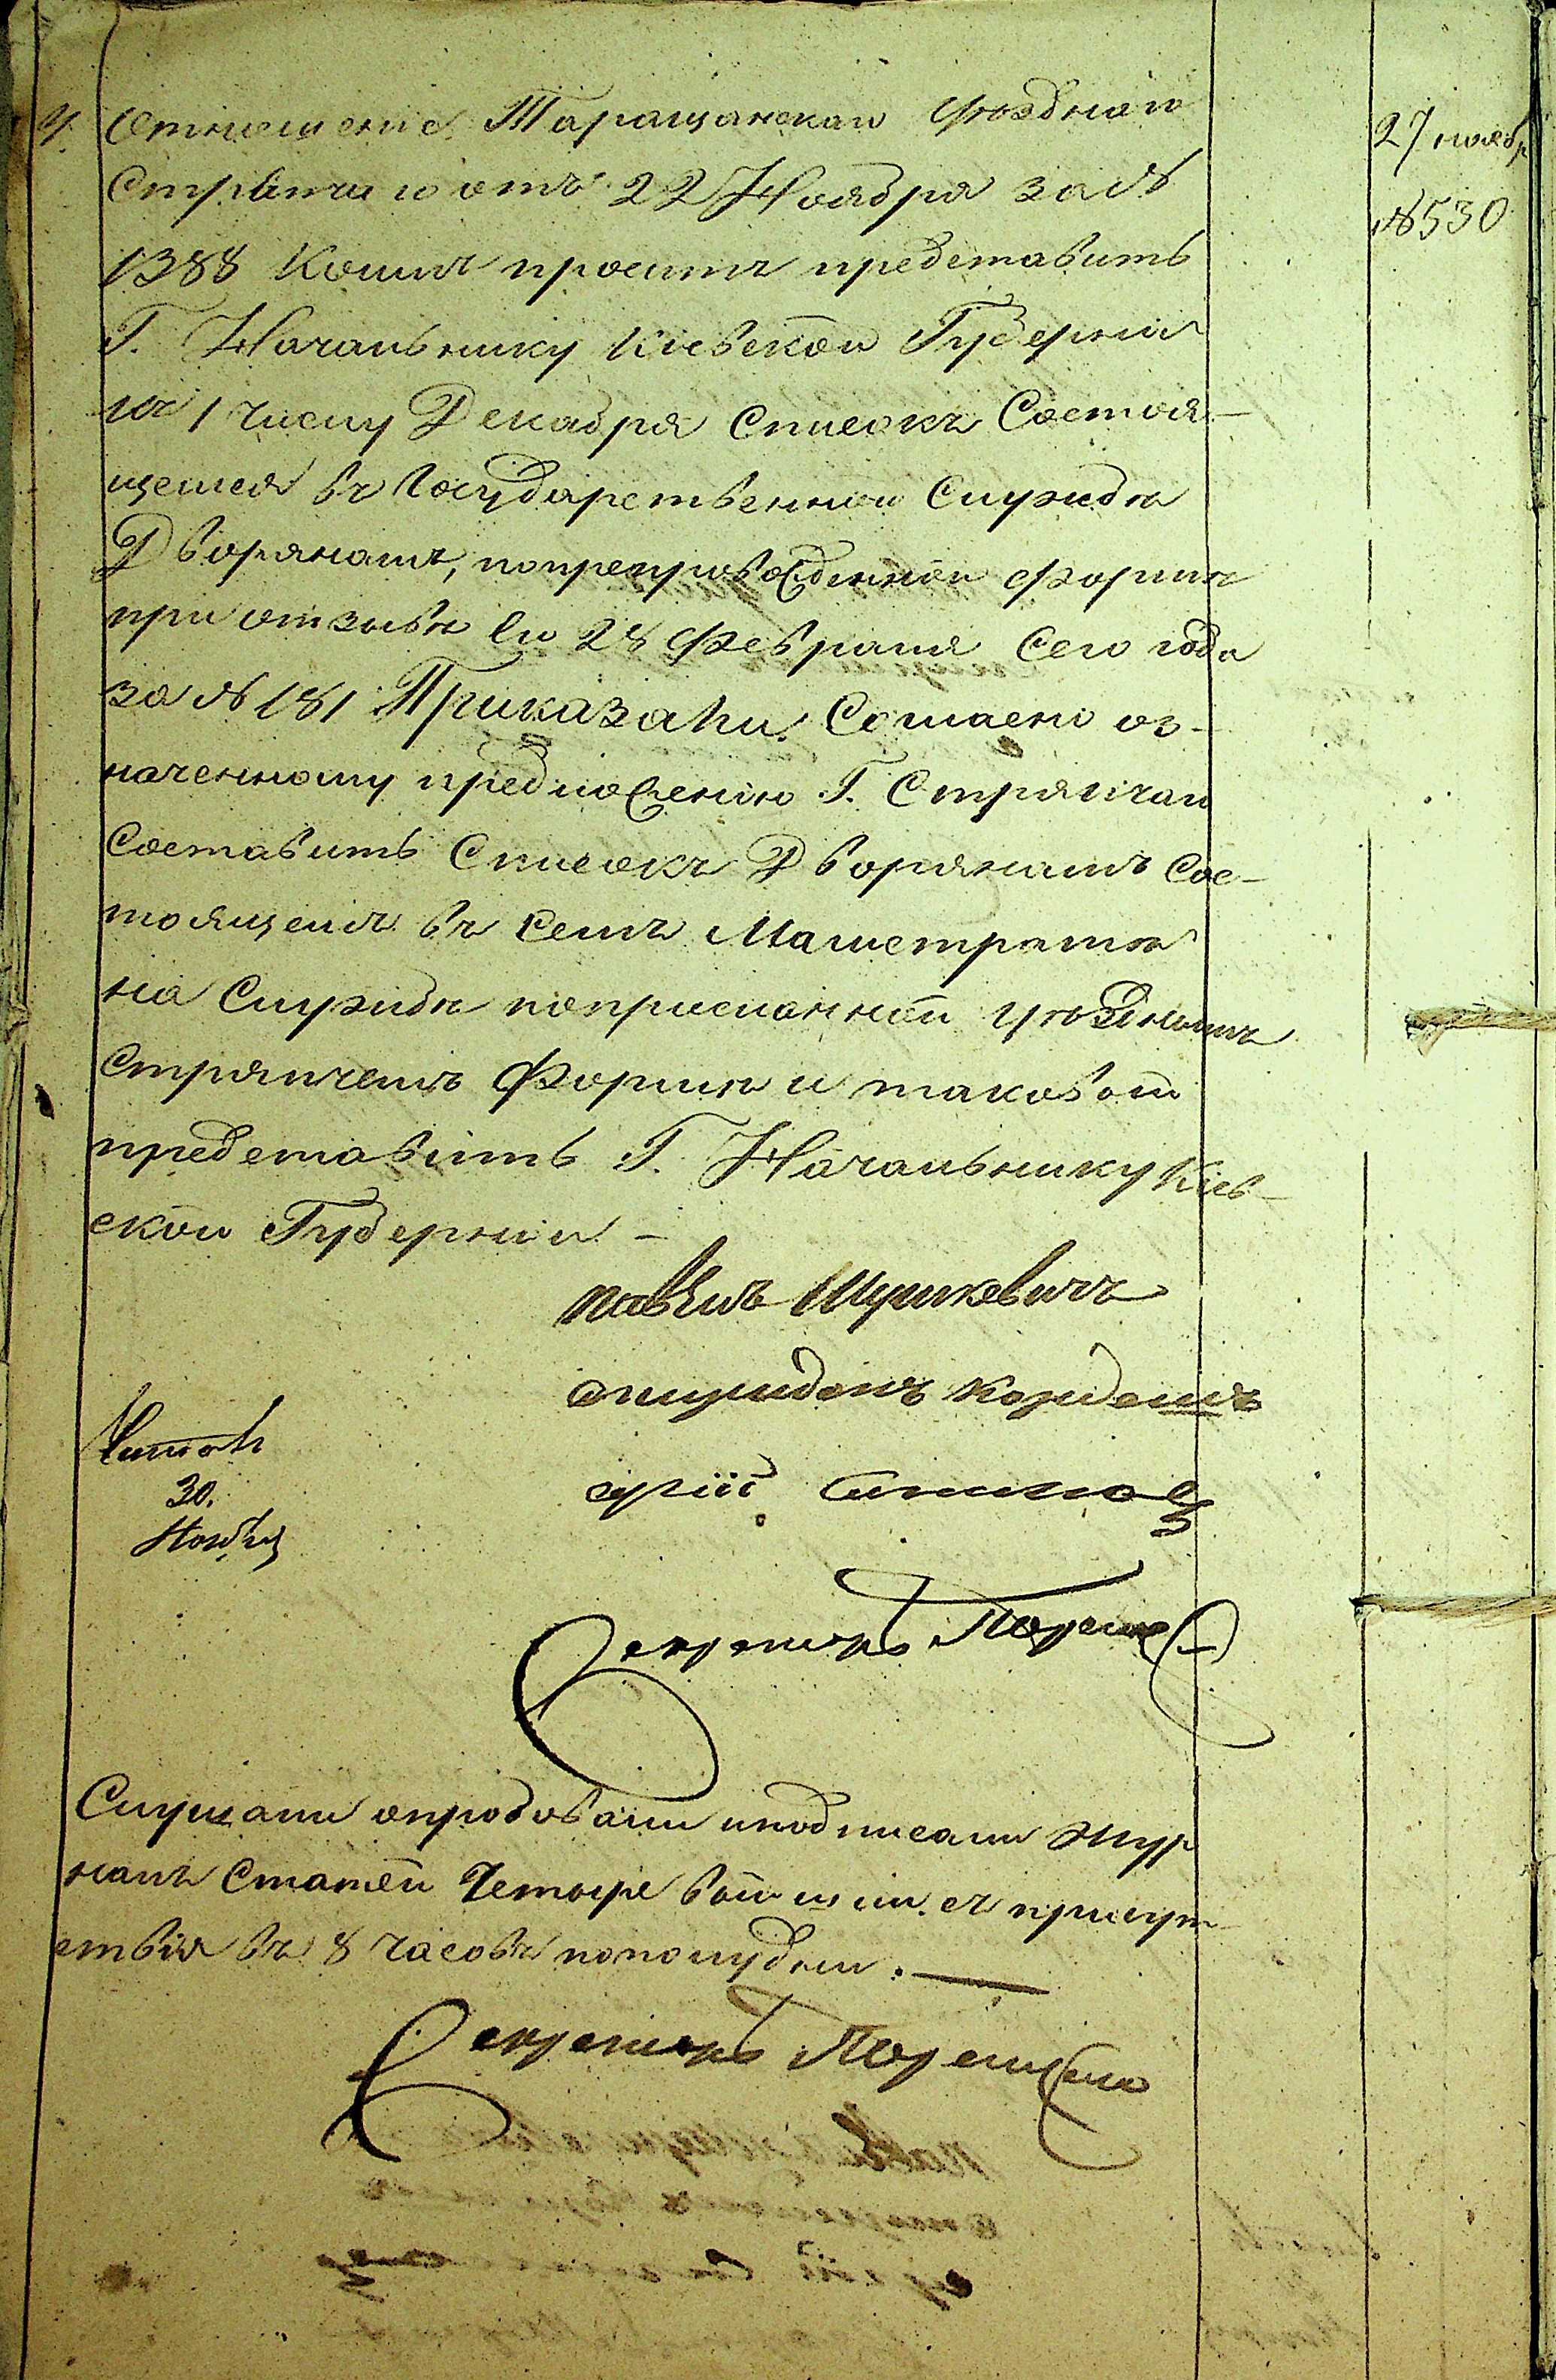 4. Отношение Таращанскаго Уѣзднаго
Стряпчаго отъ 22 Ноября за №
1388 Коимъ проситъ представить
Г. Начальнику Кіевской Губерніи
къ 1 числу Декабря Списокъ Состоя-
щемся въ Государственной Службѣ
Дворянамъ, попрепровожденной формѣ
при отзывѣ Его 28 Февраля Сего года
за № 181 Приказали: Согласно оз-
наченному предложенію Г. Стряпчаго
Составить Списокъ Дворянамъ Сос-
тоящемъ въ Семъ Магистратѣ
на Службѣ поприсланной Уѣзднымъ
Стряпчемъ Формѣ и таковой
представить Г. Начальнику Кіев-
ской Губерніи -
27 ноябр
№ 530
Павелъ Шушкевичъ
Читалъ
30.
Ноября
Секретарь
Слушали опробовали иподписали Жур
налъ Статей Четыре вышли съ присут-
ствія въ 8 часовъ пополудни. —
Секретарь